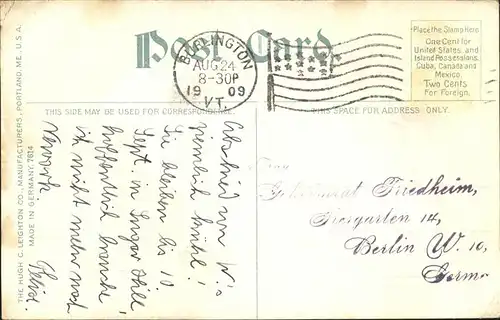 Post Card.
BURLINGTON
AUG 24
8-30P
19 09
VT.
Place the Stamp Here
One Cent for
United States and
Island Possessions,
Cuba, Canada and
Mexico.
Two Cents
For Foreign.
THIS SIDE MAY BE USED FOR CORRESPONDENCE.
THIS SPACE FOR ADDRESS ONLY.
THE HUGH C. LEIGHTON CO., MANUFACTURERS, PORTLAND, ME., U.S.A.
MADE IN GERMANY. 7614
Abschied von W.'s
ziemlich
Sie bleiben bis 10
Sept. in Sugar Hill
hoffentlich brauche
ich nicht mehr nach
Newyork
Geheimrat Friedheim,
Tiergarten 14,
Berlin W. 10,
Germ